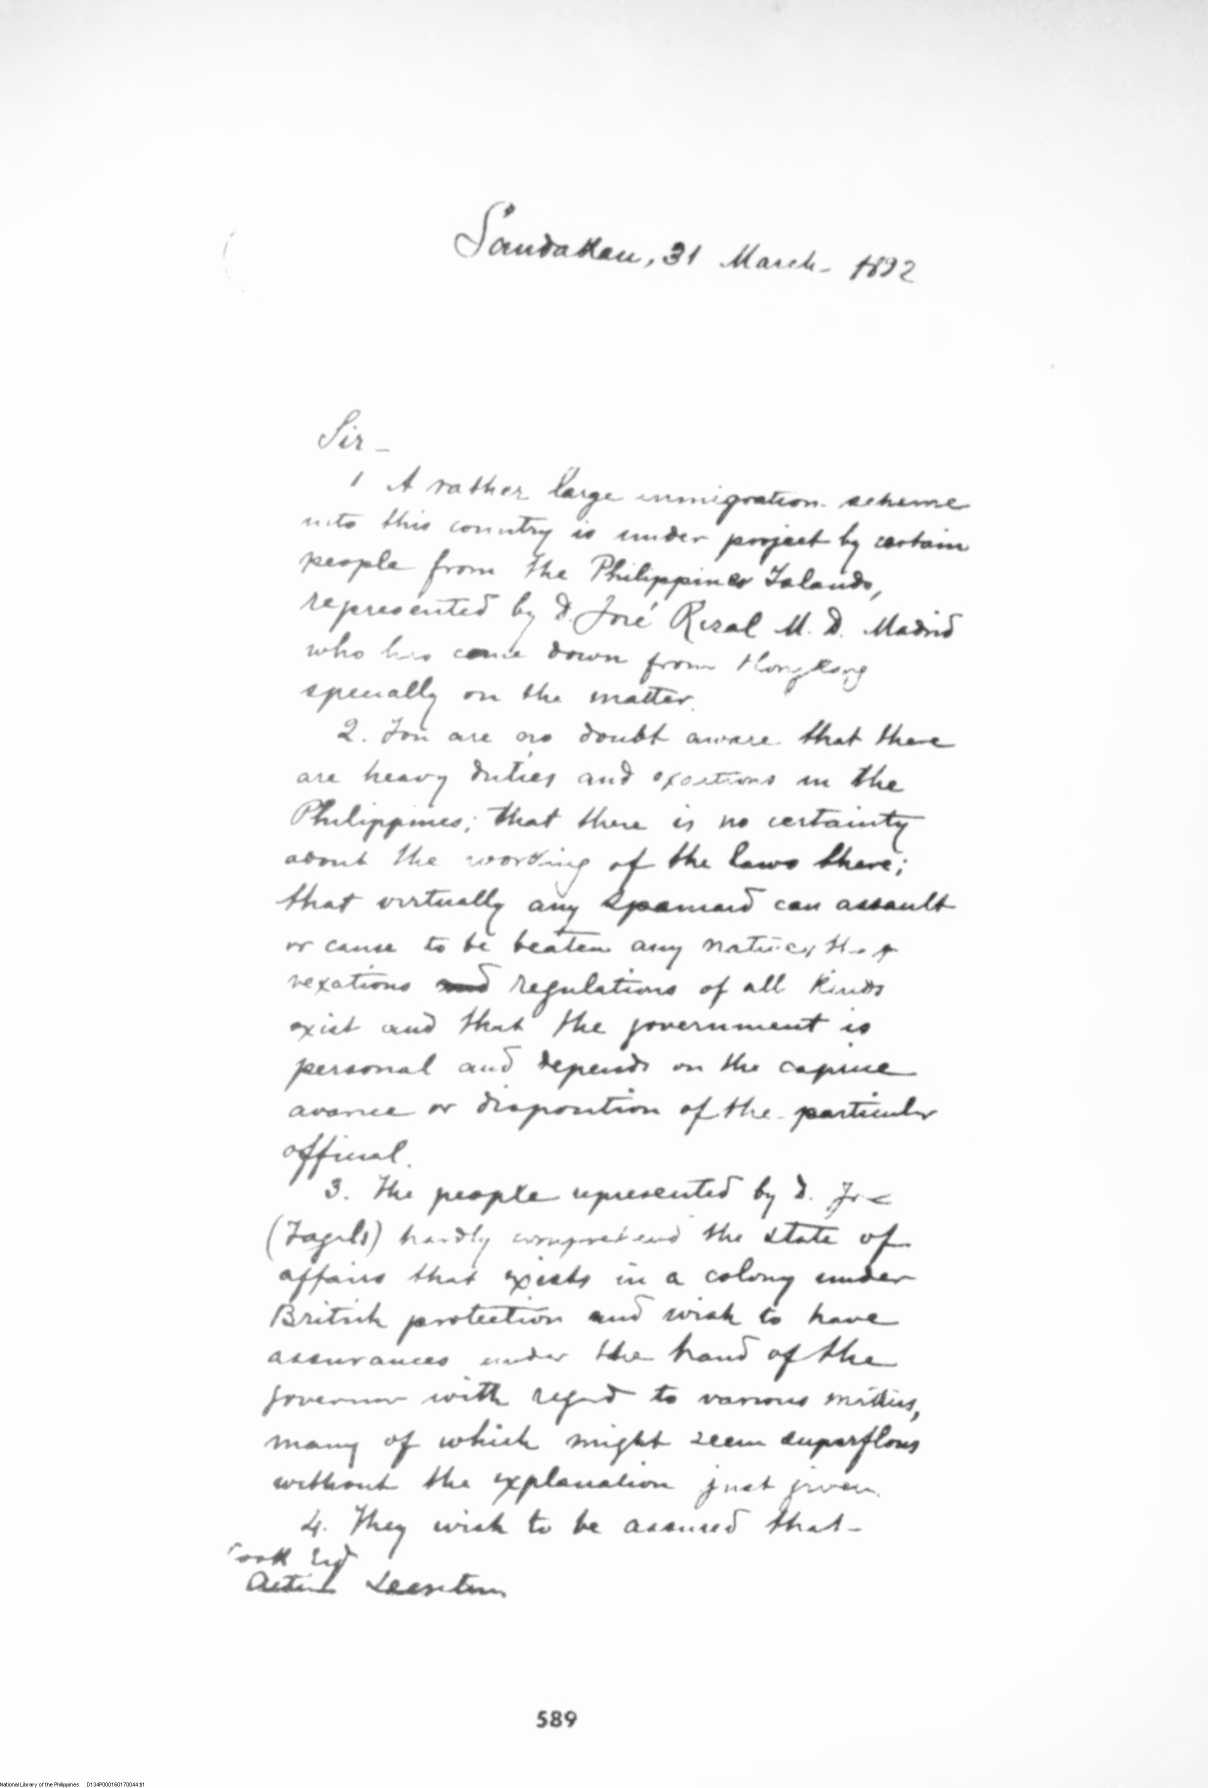 Sandakan, 31 March - 1892
Sir -
1 A rather large inmigration scheme
into this country is under project by certain
people from the Philippines Islands,
represented by D. José Rizal M. D. Madrid
who has come down from Hongkong
specially on the matter.
2. You are no doubt aware that there
are heavy duties and exactions in the
Philippines; that there is no certainty
about the working of the laws there;
that virtually any Spaniard can assault
or cause to be beaten any
vexations and regulations of all kinds
exist and that the government is
personal and depends on the caprice
avarice or disposition of the particular
official.
3. The people represented by D.
(Tagals) hardly comprehend the state of
affairs that exists in a colony under
British protection and wish to have
assurances under the hand of the
governor with regard to various matters,
many of which might seem superflous
without the explanation just given.
4. They wish to be assured that -
Cook Esq
Acting Secretary
589
National Library of the Philippines